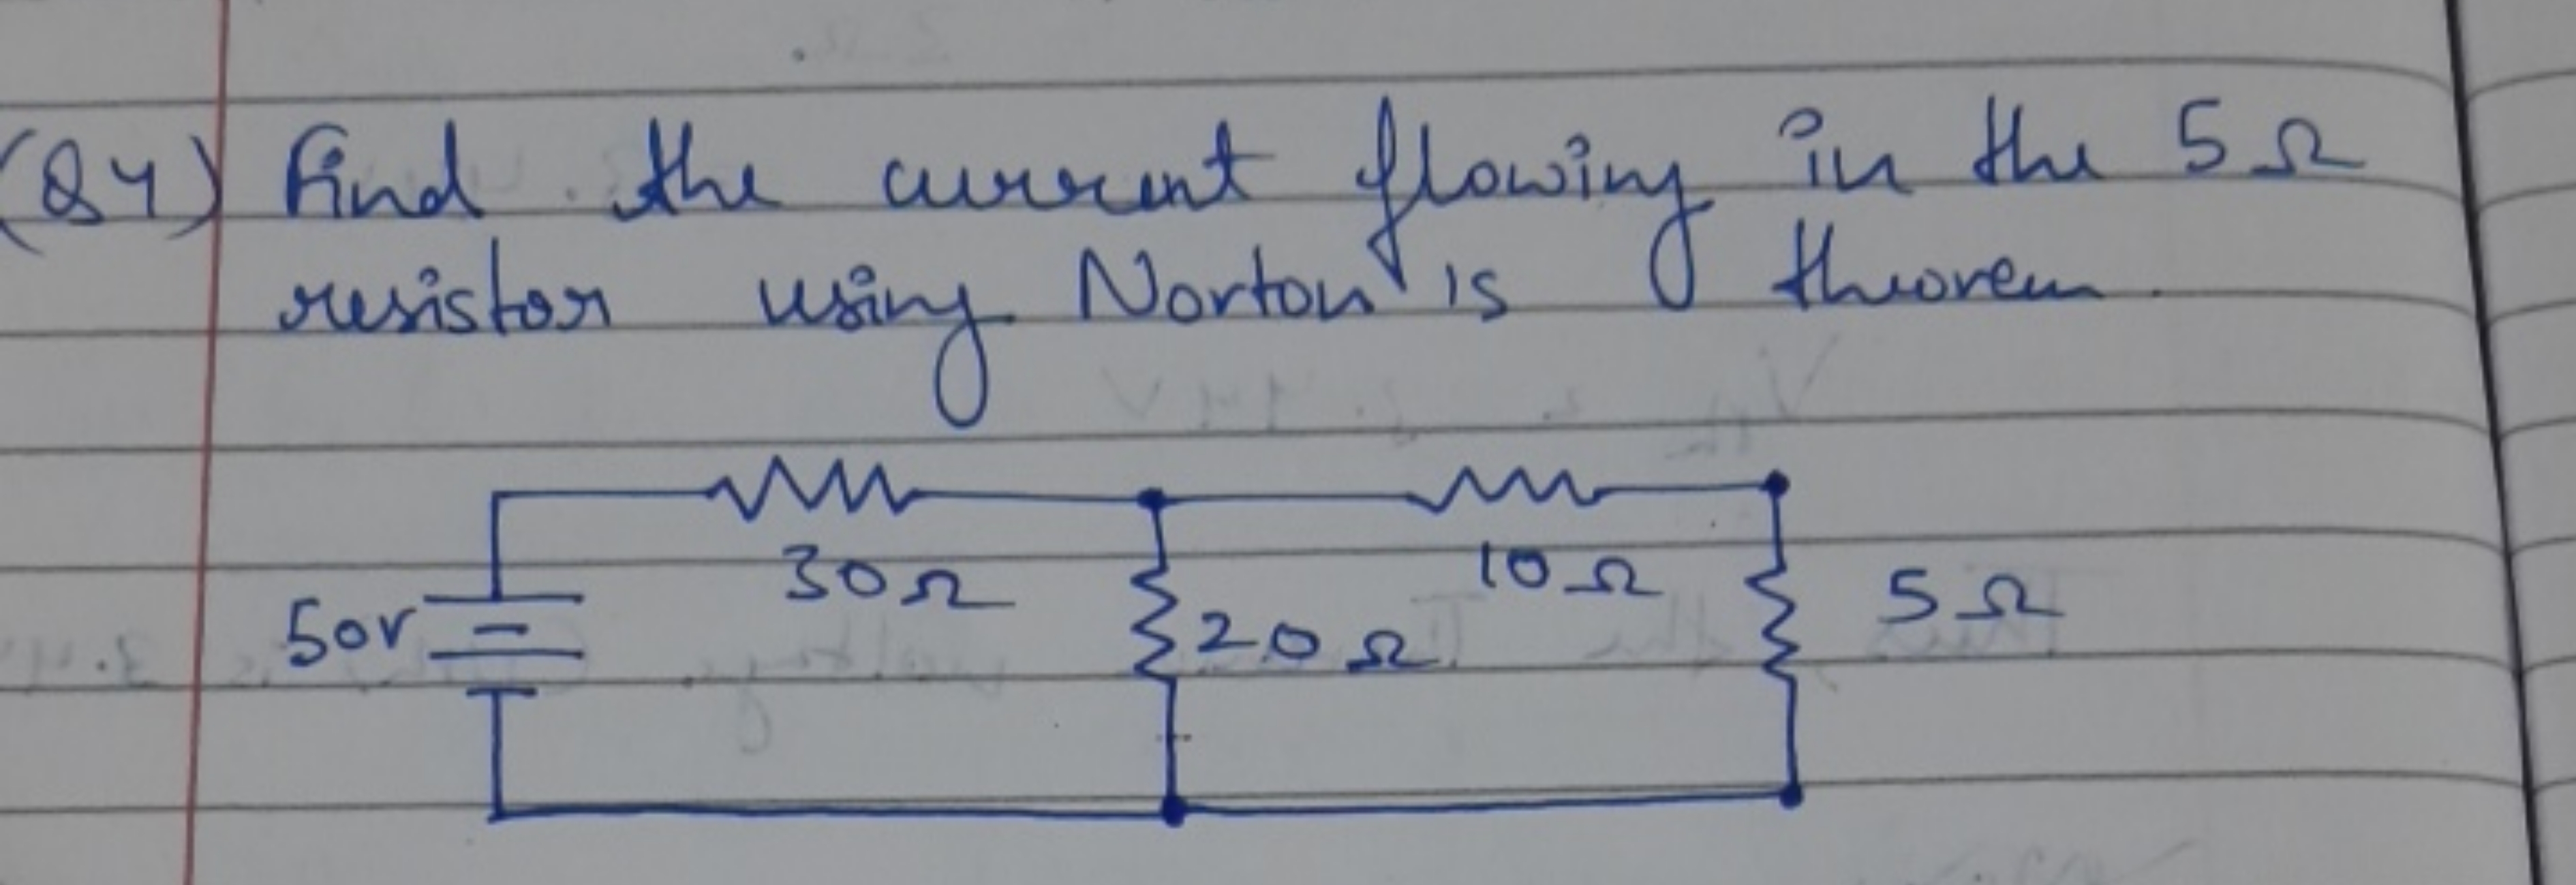 (Q4) Find the current flowing in the 5Ω
resistor using Norton's theorem.
30Ω
10Ω
50v
20Ω
5Ω